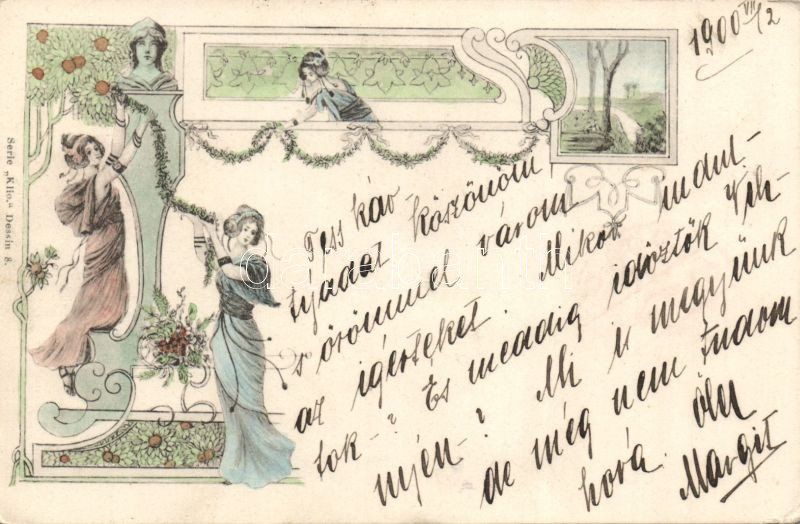 1900 VII/2
Tess káv-
tyádat köszönöm
s örömmel várom
az igérteket. Mikor indul-
tok-? És meddig időztök
nyén-? Mi is megyünk
de még nem tudom
hová. Ölel
Margit
Serie „Klio.“ Dessin 8.